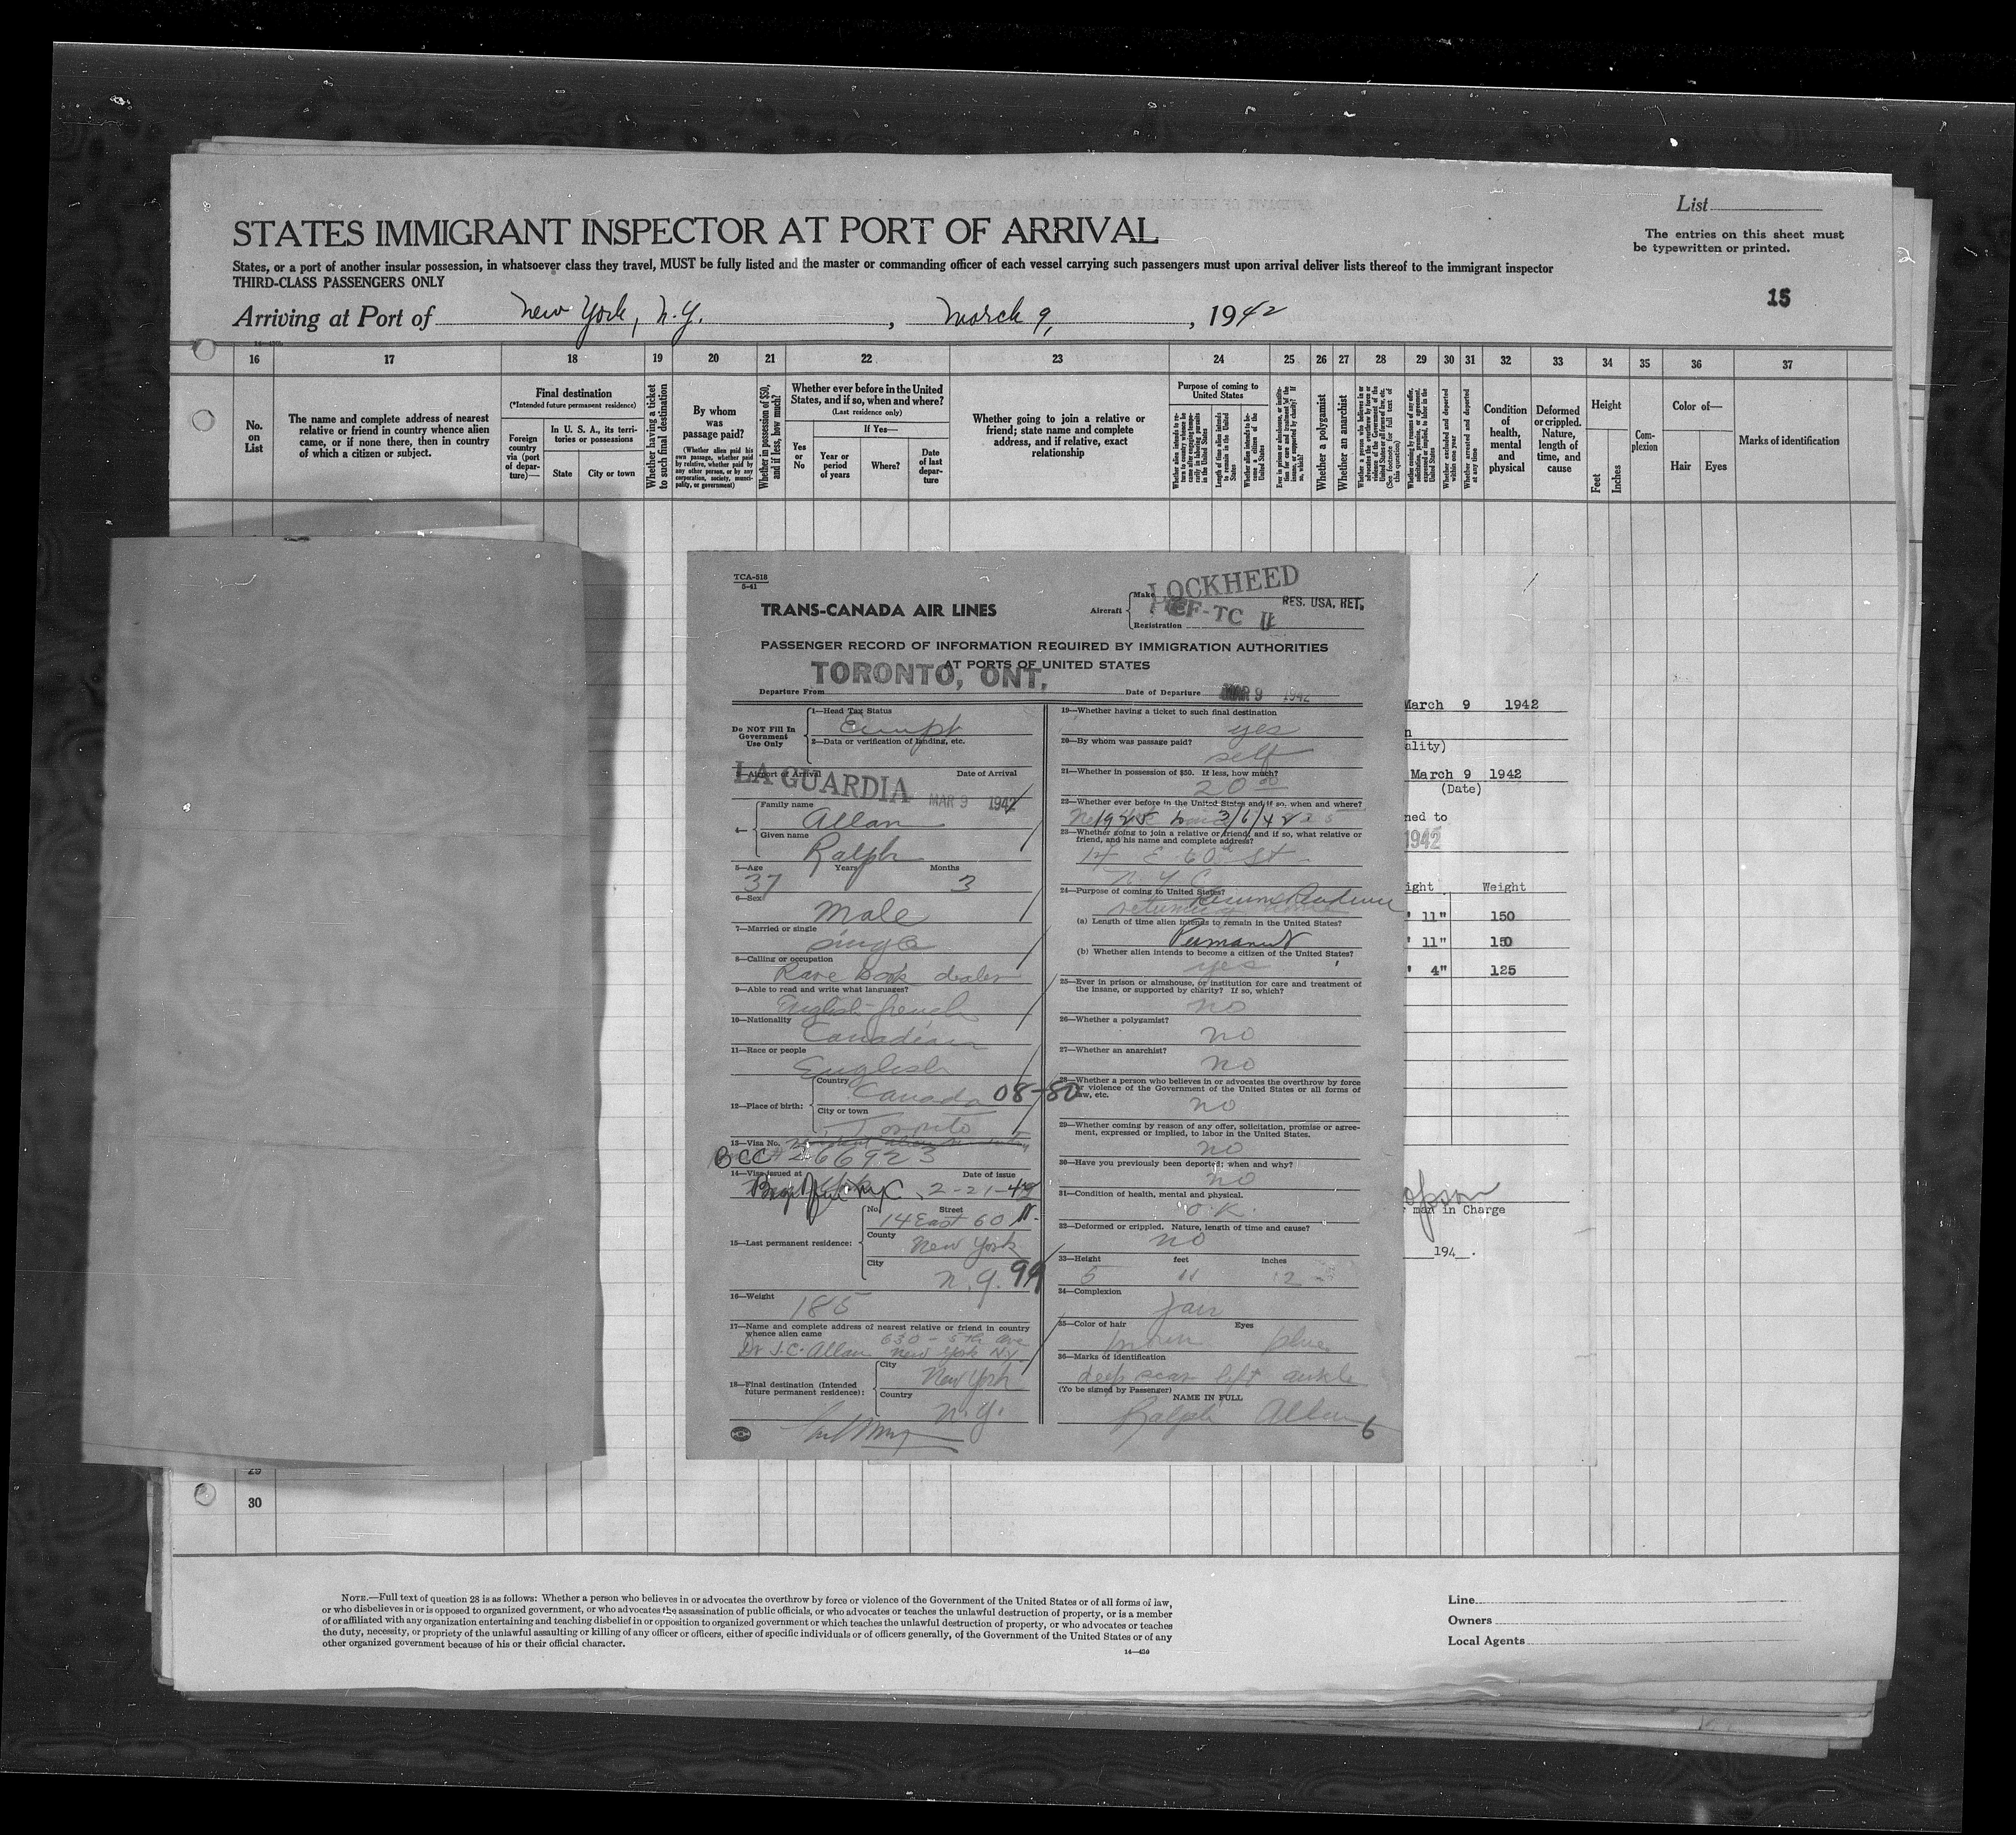 List
STATES IMMIGRANT INSPECTOR AT PORT OF ARRIVAL
The entries on this sheet must
be typewritten or printed.
States, or a port of another insular possession, in whatsoever class they travel, MUST be fully listed and the master or commanding officer of each vessel carrying such passengers must upon arrival deliver lists thereof to the immigrant inspector
THIRD-CLASS PASSENGERS ONLY
15
Arriving at Port of New York, N.Y. , March 9, , 1942
16 17 18 19 20 21 22 23 24 25 26 27 28 29 30 31 32 33 34 35 36 37
No. on List
The name and complete address of nearest relative or friend in country whence alien came, or if none there, then in country of which a citizen or subject.
Final destination
(*Intended future permanent residence)
Foreign country via (port of departure)—
In U. S. A., its territories or possessions
State
City or town
Whether having a ticket to such final destination
By whom was passage paid?
(Whether alien paid his own passage, whether paid by relative, whether paid by any other person, or by any corporation, society, municipality, or government)
Whether in possession of $50, and if less, how much?
Whether ever before in the United States, and if so, when and where?
(Last residence only)
If Yes—
Yes or No
Year or period of years
Where?
Date of last departure
Whether going to join a relative or friend; state name and complete address, and if relative, exact relationship
Purpose of coming to United States
Length of time alien intends to remain in the United States
Whether alien intends to become a citizen of the United States
Whether a polygamist
Whether an anarchist
Whether excluded and deported within one year
Whether arrested and deported at any time
Condition of health, mental and physical
Deformed or crippled. Nature, length of time, and cause
Height
Feet
Inches
Complexion
Color of—
Hair
Eyes
Marks of identification
TCA-518
5-41
TRANS-CANADA AIR LINES
Aircraft
Make LOCKHEED
RES. USA. RET.
Registration CF-TC
PASSENGER RECORD OF INFORMATION REQUIRED BY IMMIGRATION AUTHORITIES
AT PORTS OF UNITED STATES
Departure From TORONTO, ONT.
Date of Departure MAR 9 1942
Do NOT Fill In Government Use Only
1—Head Tax Status
Exempt
2—Data or verification of landing, etc.
3—Airport of Arrival Date of Arrival
LA GUARDIA MAR 9 1942
4—
Family name
Allan
Given name
Ralph
5—Age Years Months
37 3
6—Sex
Male
7—Married or single
Single
8—Calling or occupation
Rare Book dealer
9—Able to read and write what languages?
English-french
10—Nationality
Canadian
11—Race or people
English
12—Place of birth:
Country
Canada 08-80
City or town
Toronto
13—Visa No.
BCC # 266923
14—Visa issued at Date of issue
2-21-42
15—Last permanent residence:
No. Street
14 East 60
County
New York
City
N.Y. 99
16—Weight
185
17—Name and complete address of nearest relative or friend in country
whence alien came
630 - 5th Ave
Dr J.C. Allan New York NY
18—Final destination (Intended
future permanent residence):
City
New York
Country
N.Y.
19—Whether having a ticket to such final destination
yes
20—By whom was passage paid?
self
21—Whether in possession of $50. If less, how much?
20 00
22—Whether ever before in the United States and if so, when and where?
1925 3/6/42
23—Whether going to join a relative or friend, and if so, what relative or
friend, and his name and complete address?
14 E 60 St
N.Y.C.
24—Purpose of coming to United States?
Resume Residence
returning home
(a) Length of time alien intends to remain in the United States?
Permanent
(b) Whether alien intends to become a citizen of the United States?
yes
25—Ever in prison or almshouse, or institution for care and treatment of
the insane, or supported by charity? If so, which?
no
26—Whether a polygamist?
no
27—Whether an anarchist?
no
28—Whether a person who believes in or advocates the overthrow by force
or violence of the Government of the United States or all forms of
law, etc.
no
29—Whether coming by reason of any offer, solicitation, promise or agree-
ment, expressed or implied, to labor in the United States.
no
30—Have you previously been deported; when and why?
no
31—Condition of health, mental and physical.
O.K.
32—Deformed or crippled. Nature, length of time and cause?
no
33—Height feet inches
5 12
34—Complexion
fair
35—Color of hair Eyes
brown blue
36—Marks of identification
deep scar left ankle
(To be signed by Passenger)
NAME IN FULL
Ralph Allan 6
March 9 1942
ality)
March 9 1942
(Date)
ned to
1942
ight Weight
' 11" 150
' 11" 150
' 4" 125
man in Charge
194 .
29
30
NOTE.—Full text of question 28 is as follows: Whether a person who believes in or advocates the overthrow by force or violence of the Government of the United States or of all forms of law,
or who disbelieves in or is opposed to organized government, or who advocates the assassination of public officials, or who advocates or teaches the unlawful destruction of property, or is a member
of or affiliated with any organization entertaining and teaching disbelief in or opposition to organized government or which teaches the unlawful destruction of property, or who advocates or teaches
the duty, necessity, or propriety of the unlawful assaulting or killing of any officer or officers, either of specific individuals or of officers generally, of the Government of the United States or of any
other organized government because of his or their official character.
14—436
Line
Owners
Local Agents